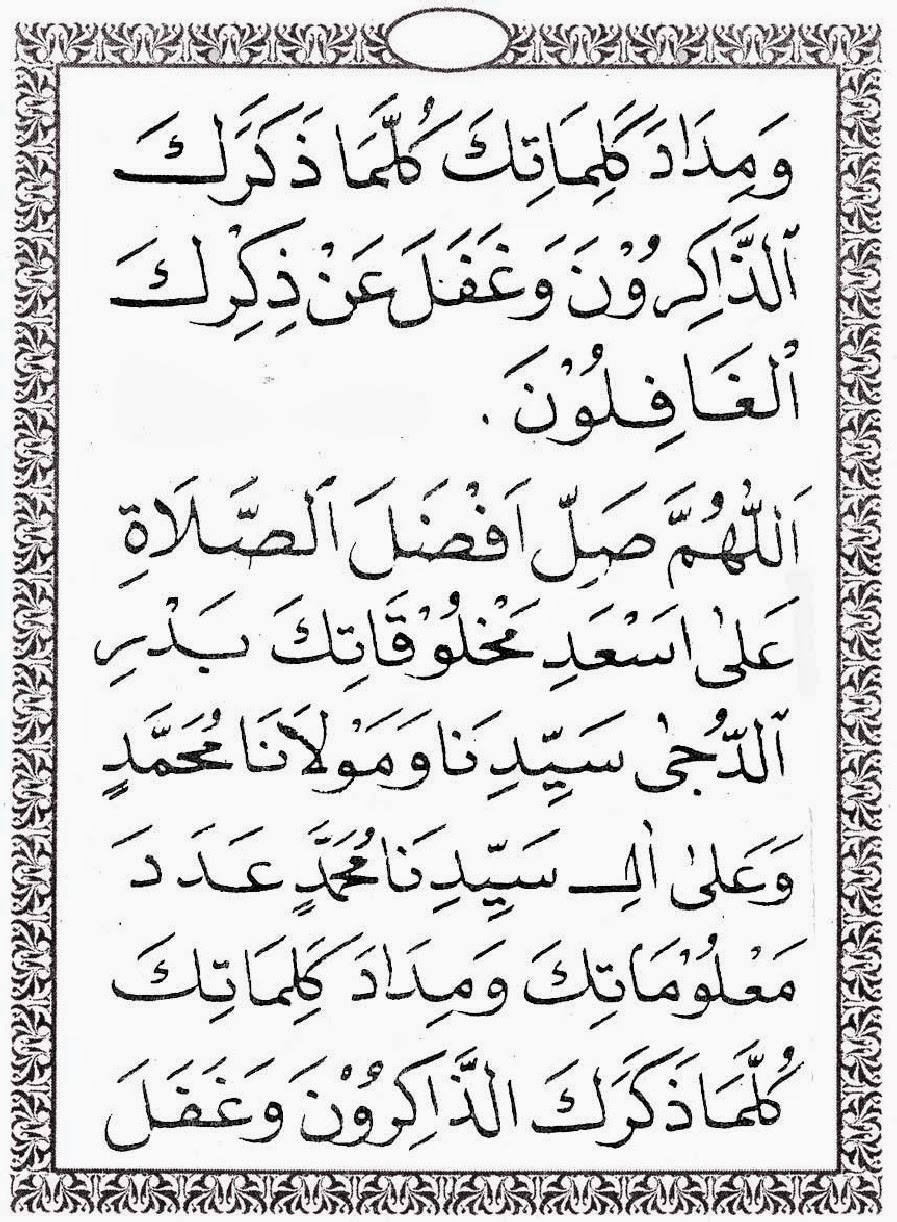 وَمِدَادَ كَلِمَاتِكَ كُلَّمَا ذَكَرَكَ
ٱلذَّاكِرُوْنَ وَغَفَلَ عَنْ ذِكْرِكَ
ٱلْغَافِلُوْنَ .
اَللّٰهُمَّ صَلِّ اَفْضَلَ ٱلصَّلَاةِ
عَلٰى اَسْعَدِ مَخْلُوْقَاتِكَ بَدْرِ
ٱلدُّجٰى سَيِّدِنَا وَمَوْلَانَا مُحَمَّدٍ
وَعَلٰى اٰلِ سَيِّدِنَا مُحَمَّدٍ عَدَدَ
مَعْلُوْمَاتِكَ وَمِدَادَ كَلِمَاتِكَ
كُلَّمَا ذَكَرَكَ الذَّاكِرُوْنَ وَغَفَلَ